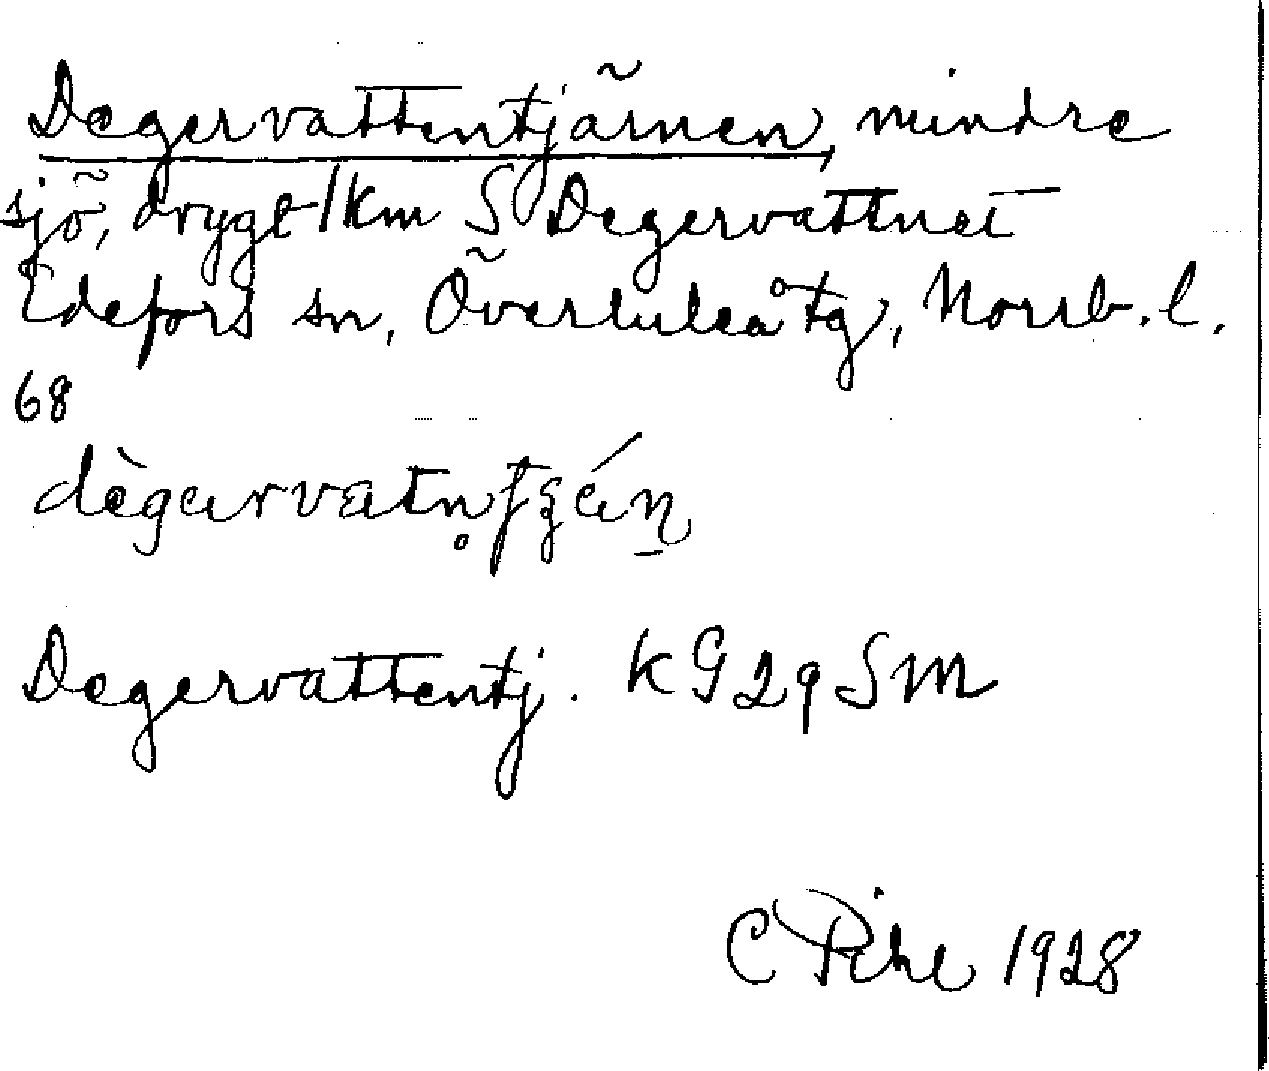 Degervattentjärnen, mindre
sjö, drygt 1 km S Degervattnet
Edefors sn, Överluleå tg, Norrb. l.
68
Degervattentj. KG 29 SM
C Pihl 1928